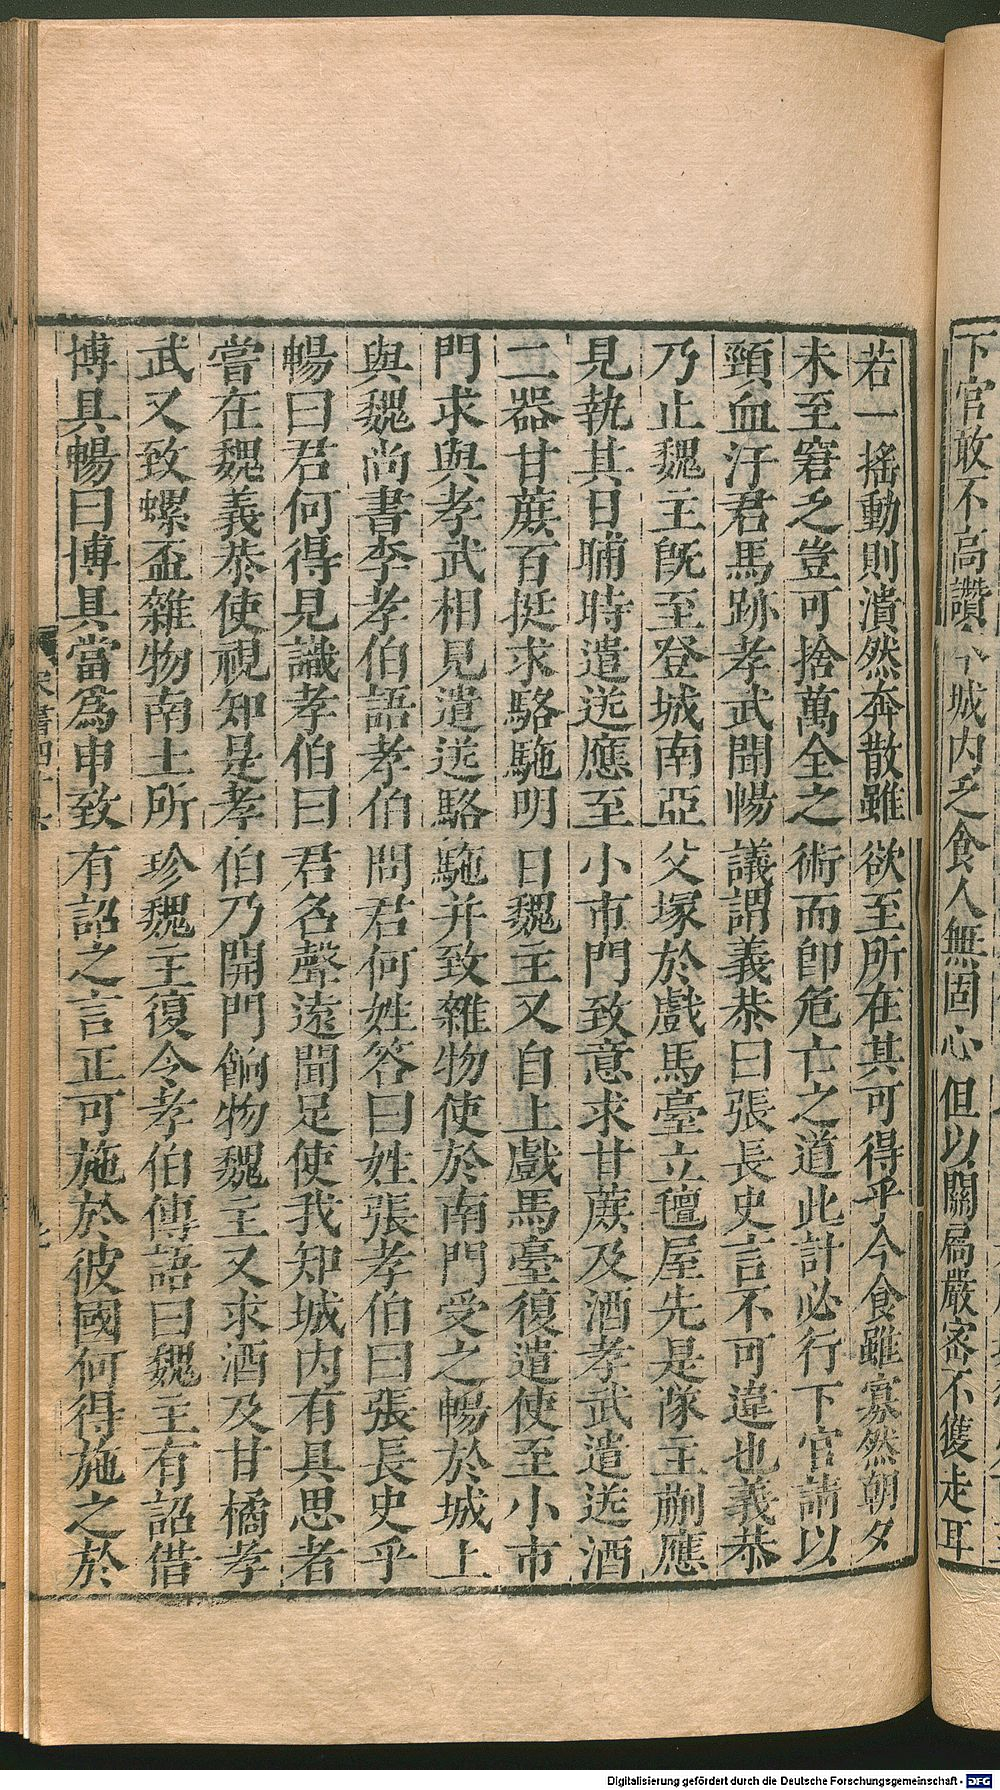 下官敢不高讚今城內乏食人無固心但以關扃嚴密不獲走耳
若一搖動則潰然奔散雖欲至所在其可得乎今食雖寡然朝夕
未至窘乏豈可捨萬全之術而卽危亡之道此計必行下官請以
頸血汙君馬跡孝武聞暢議謂義恭曰張長史言不可違也義恭
乃止魏主旣至登城南亞父塚於戲馬臺立氊屋先是隊主蒯應
見執其日晡時遣送應至小市門致意求甘蔗及酒孝武遣送酒
二器甘蔗百挺求駱駞明日魏主又自上戲馬臺復遣使至小市
門求與孝武相見遣送駱駞并致雜物使於南門受之暢於城上
與魏尚書李孝伯語孝伯問君何姓答曰姓張孝伯曰張長史乎
暢曰君何得見識孝伯曰君名聲遠聞足使我知城內有具思者
嘗在魏義恭使視知是孝伯乃開門餉物魏主又求酒及甘橘孝
武又致螺盃雜物南土所珍魏主復令孝伯傳語曰魏主有詔借
博具暢曰博具當爲申致有詔之言正可施於彼國何得施之於
宋書四十六
Digitalisierung gefördert durch die Deutsche Forschungsgemeinschaft - DFG